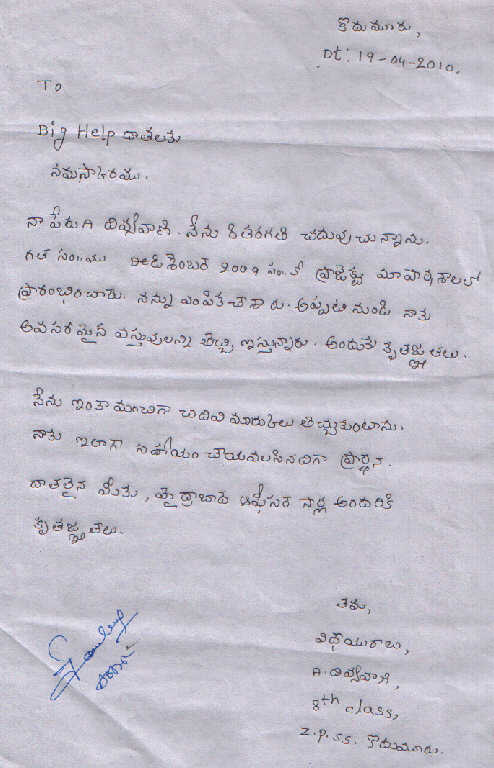 కొడుమూరు,
Dt: 19-04-2010.
To
Big Help దాతలకు
నమస్కారము.
నా పేరు గి దివ్యవాణి. నేను 8 తరగతి చదువుచున్నాను.
గత సం॥ము డిశెంబర్ 2009 సం.లో ప్రాజెక్టు మా పాఠశాలలో
ప్రారంభించారు. నన్ను ఎంపిక చేశారు. అప్పటి నుండి నాకు
అవసరమైన వస్తువులన్ని తెచ్చి ఇస్తున్నారు. అందుకు కృతజ్ఞతలు.
నేను ఇంకా మంచిగా చదివి మార్కులు తెచ్చుకుంటాను.
నాకు ఇలాగా సహాయం చేయవలసినదిగా ప్రార్థన.
దాతలైన మీకు, హైద్రాబాదు ఆఫీసర్ సార్ల అందరికి
కృతజ్ఞతలు.
తమ,
విధేయురాలు,
దివ్యవాణి,
8th class,
Z.P.S.S. కొడుమూరు.